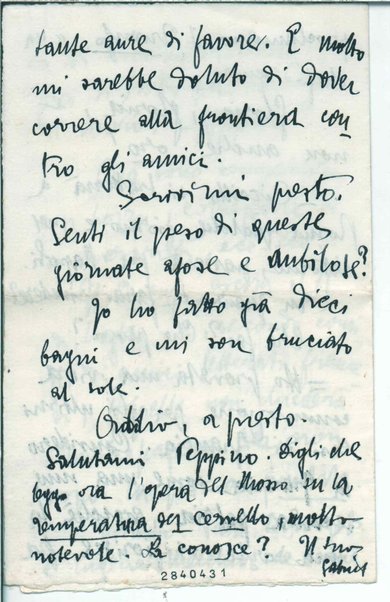 tante aure di favore. E molto
mi sarebbe doluto di dover
correre alla frontiera con
tro gli amici.
Scrivimi presto.
Senti il peso di queste
giornate afose e nubilose?
Io ho fatto già dieci
bagni e mi son bruciato
al sole.
Addio, a presto.
Salutami Peppino. Digli che
leggo ora l'opera del Mosso su la
temperatura del cervello, molto
notevole. La conosce? Il tuo
Gabriel
2840431